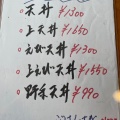 ・天丼 ¥1300
・上天丼 ¥1650
・えび天丼 ¥1300
・上えび天丼 ¥1550
・野菜天丼 ¥990